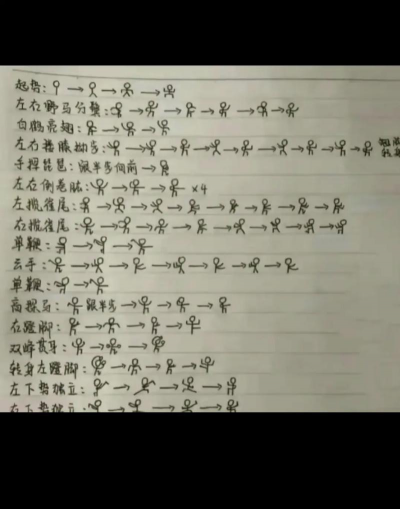 起势:
左右野马分鬃:
白鹤亮翅:
左右搂膝拗步:
手挥琵琶:跟半步侧前
左右倒卷肱: ×4
左揽雀尾:
右揽雀尾:
单鞭:
云手:
单鞭:
高探马: 跟半步
右蹬脚:
双峰贯耳:
转身左蹬脚:
左下势独立:
右下势独立: